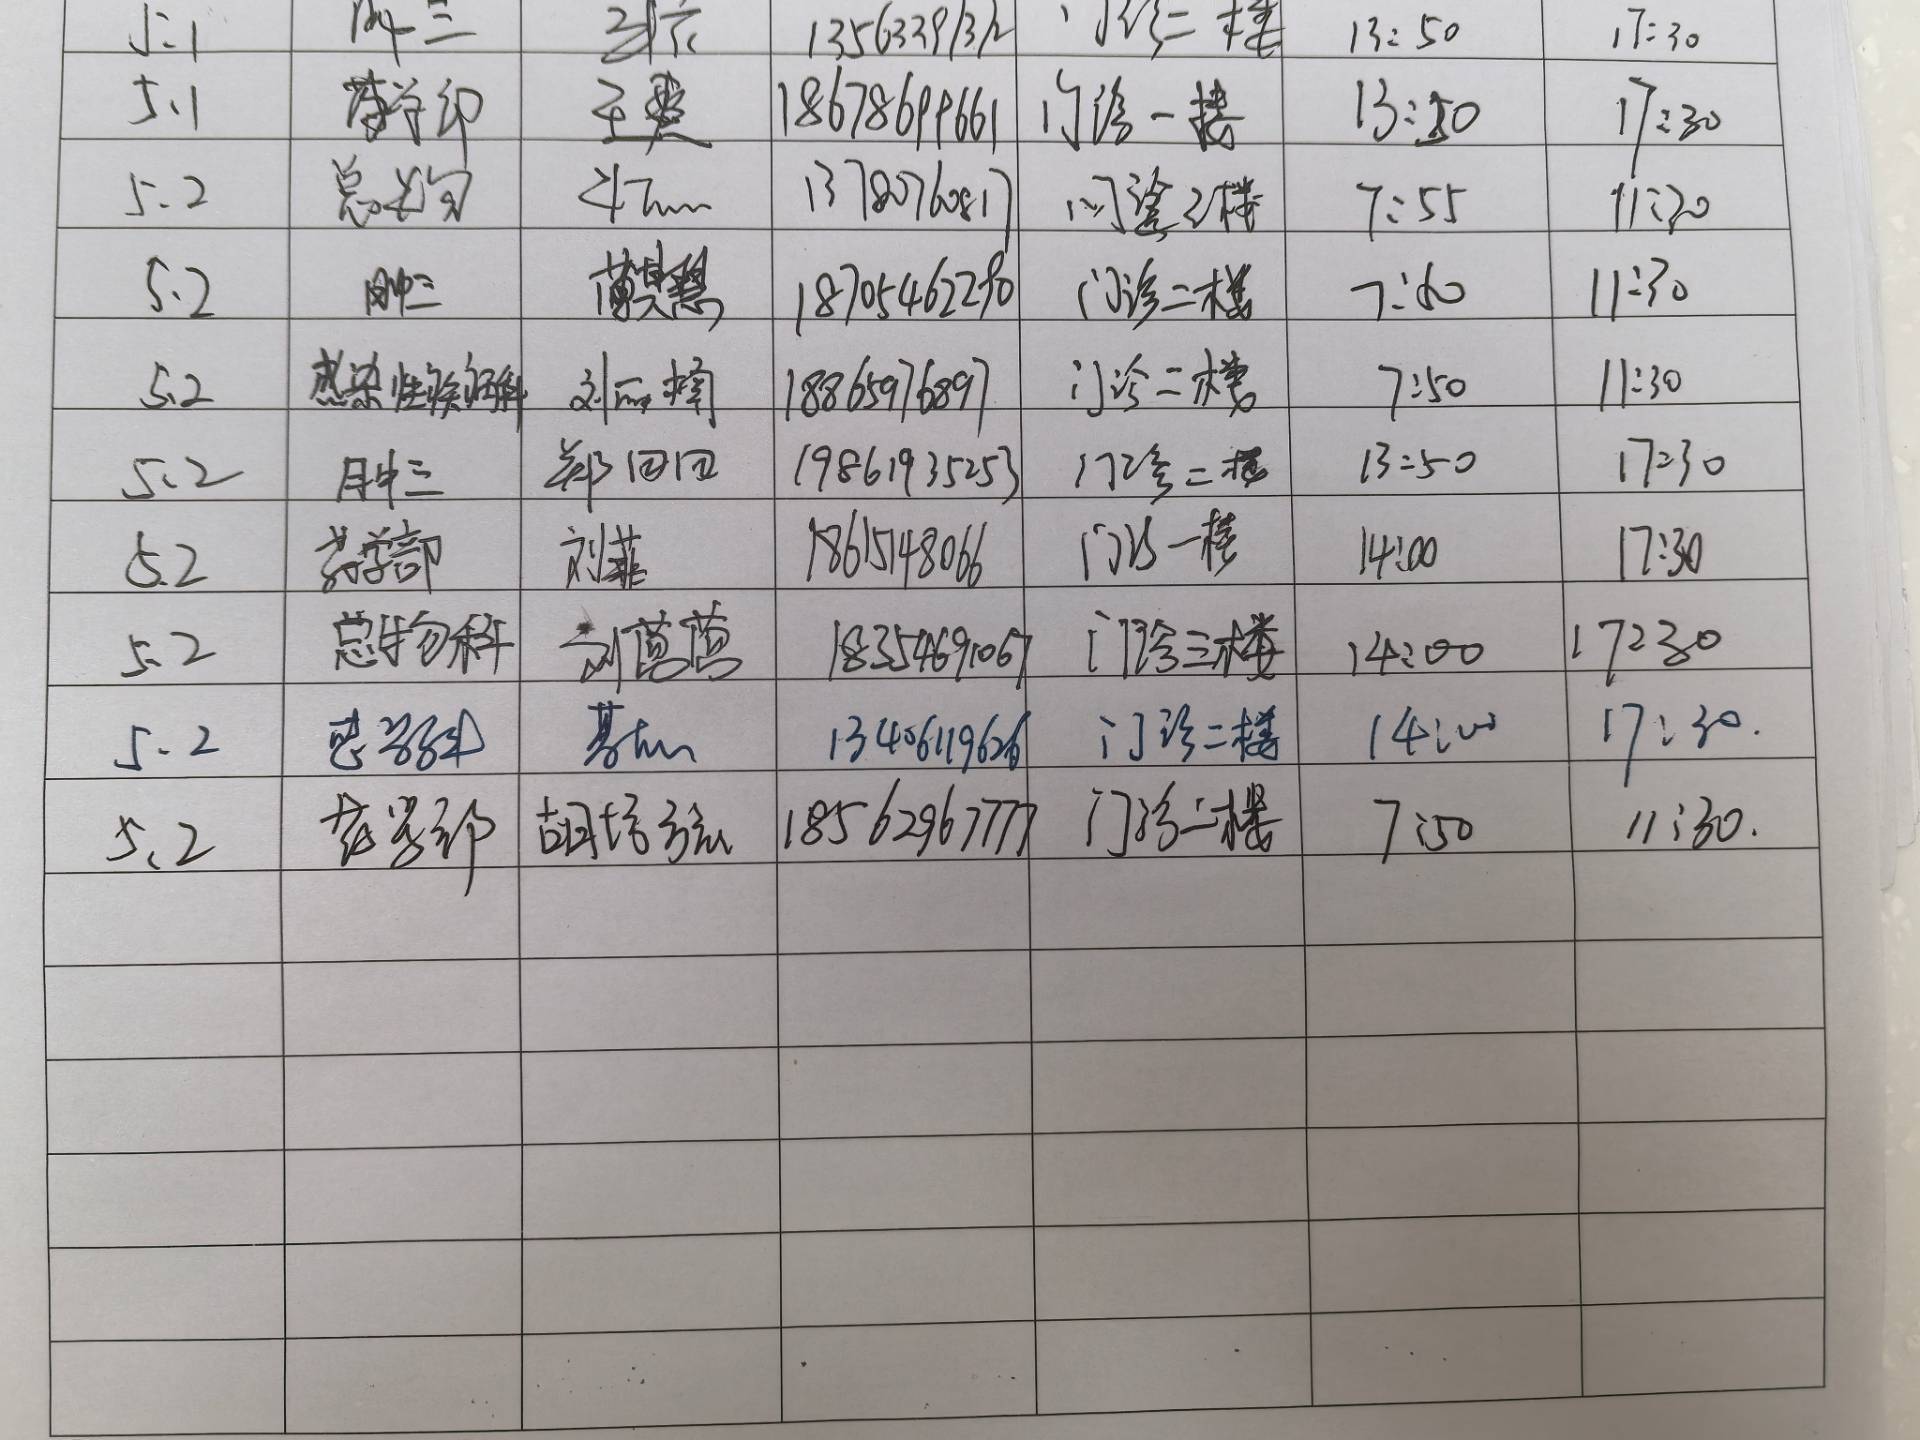 5.1 肿三 13563391312 门诊二楼 13:50 17:30
5.1 药学部 王燕 18678699661 门诊一楼 13:50 17:30
5.2 13780760817 门诊2楼 7:55 11:30
5.2 肿三 薄其慧 18705462290 门诊二楼 7:50 11:30
5.2 感染性疾病科 刘丽楠 18865976897 门诊二楼 7:50 11:30
5.2 肿三 郑田田 19861935253 门诊二楼 13:50 17:30
5.2 药学部 刘菲 18615148066 门诊一楼 14:00 17:30
5.2 总务科 刘茵茵 18354691067 门诊三楼 14:00 17:30
5.2 13406119626 门诊二楼 14:00 17:30.
5.2 药学部 18562967777 门诊二楼 7:50 11:30.